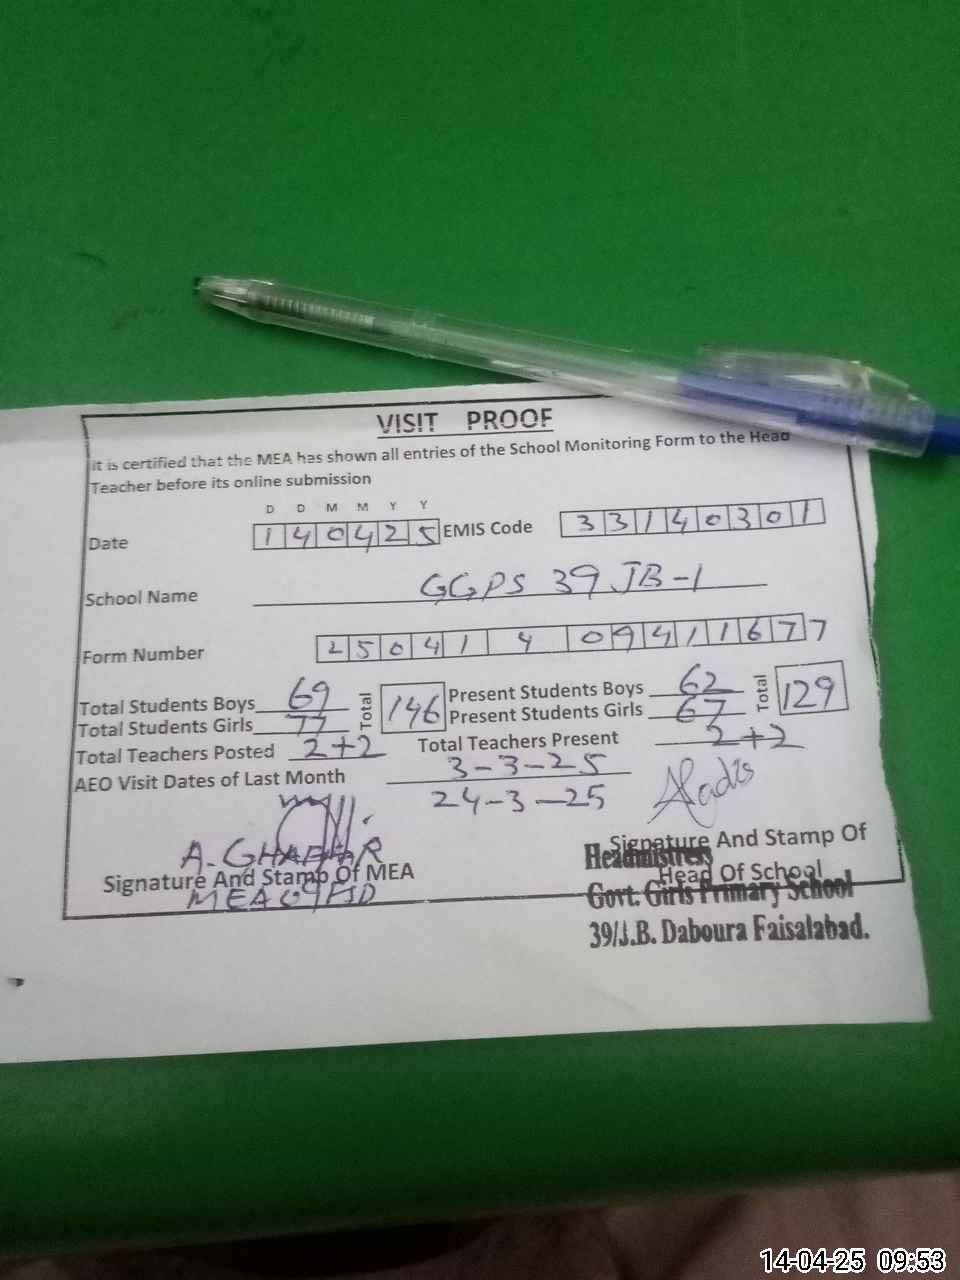 VISIT PROOF
It is certified that the MEA has shown all entries of the School Monitoring Form to the Head
Teacher before its online submission
D D M M Y Y
Date 140425 EMIS Code 33140301
School Name GGPS 39 JB-1
Form Number 25041 4 09411677
Total Students Boys 69 Total 146 Present Students Boys 62 Total 129
Total Students Girls 77 Present Students Girls 67
Total Teachers Posted 2+2 Total Teachers Present 2+2
AEO Visit Dates of Last Month 3-3-25
24-3-25
A. GHAFFAR
Signature And Stamp Of MEA
MEA
Signature And Stamp Of
Head Of School
Headmistress
Govt. Girls Primary School
39/J.B. Daboura Faisalabad.
14-04-25 09:53